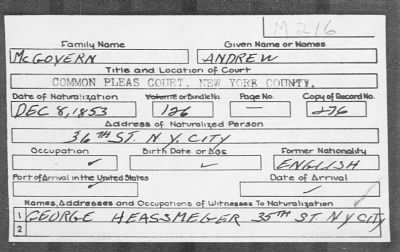 M 216
Family Name Given Name or Names
McGOVERN ANDREW
Title and Location of Court
COMMON PLEAS COURT, NEW YORK COUNTY.
Date of Naturalization Volume or Bundle No. Page No. Copy of Record No.
DEC 8, 1853 126 — 276
Address of Naturalized Person
36TH ST. N.Y. CITY
Occupation Birth Date or Age Former Nationality
✓ ✓ ENGLISH
Port of Arrival in the United States Date of Arrival
✓ ✓
Names, Addresses and Occupations of Witnesses To Naturalization
1 GEORGE HEASSMEGER 35TH ST N Y CITY
2